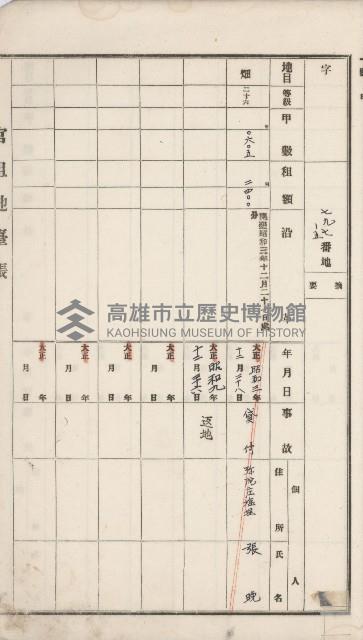 字
七九七番地
一五
摘要
地目
等級
甲數
租額
沿
年月日
事故
個人
住所
氏名
畑
二十六
〇六〇五
二四〇〇
昭和三年十二月二十
大正 昭和三年
十二月二十八日
貸付
張
晚
大正 昭和九年
十二月 日
返地
大正 年
月 日
大正 年
月 日
大正 年
月 日
大正 年
月 日
官租地臺帳
高雄市立歷史博物館
KAOHSIUNG MUSEUM OF HISTORY